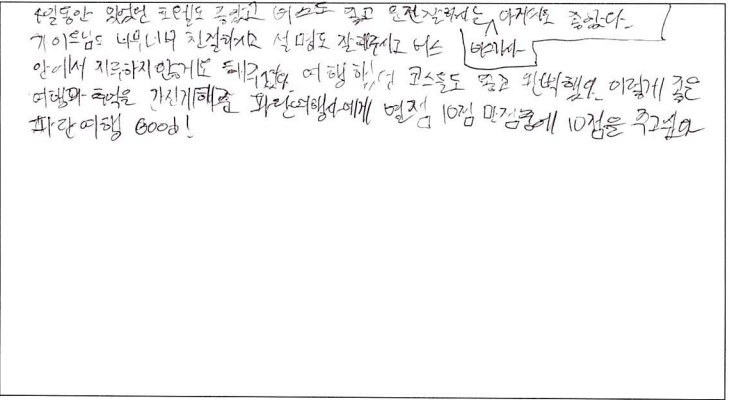 4일동안 있었던 호텔도 좋았고 버스도 좋고 운전잘하시는 아저씨도 좋았다.
가이드님도 너무너무 친절하시고 설명도 잘해주시고 버스 버스기사
안에서 지루하지 않게도 해주셨다. 여행 코스들도 좋고 완벽했다. 이렇게 좋은
여행과 추억을 간직하게해준 파란여행사에게 별점 10점 만점중에 10점을 주고싶다
파란여행 Good!